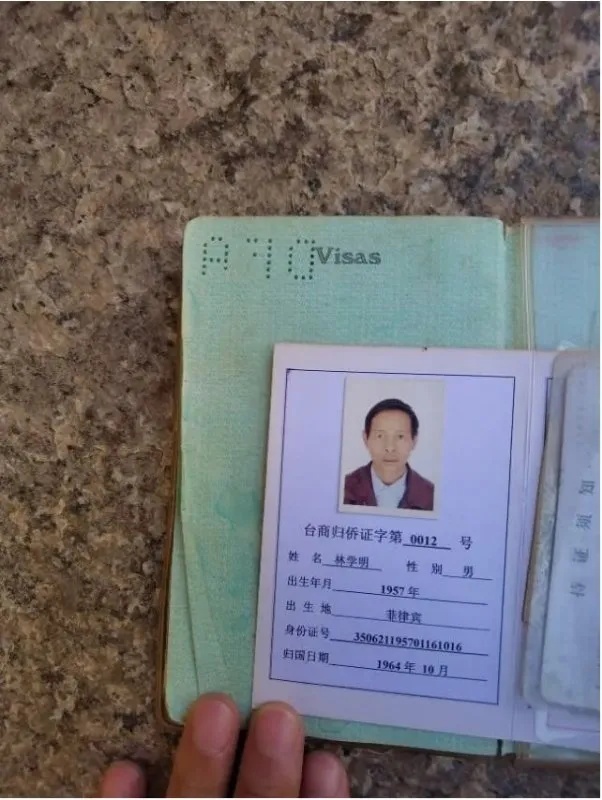 P10
Visas
台商归侨证字第 0012 号
姓 名 林学明 性 别 男
出生年月 1957年
出 生 地 菲律宾
身份证号 350621195701161016
归国日期 1964年10月
持证须知